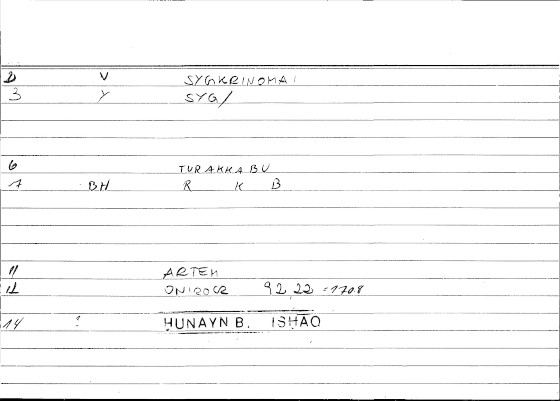 2 V SYGKRINOMAI
3 Y SYG/
6 TURAKKABU
7 BH R K B
11 ARTEM
12 ONIROCR 92,22 =170,8
14 : HUNAYN B. ISHAQ